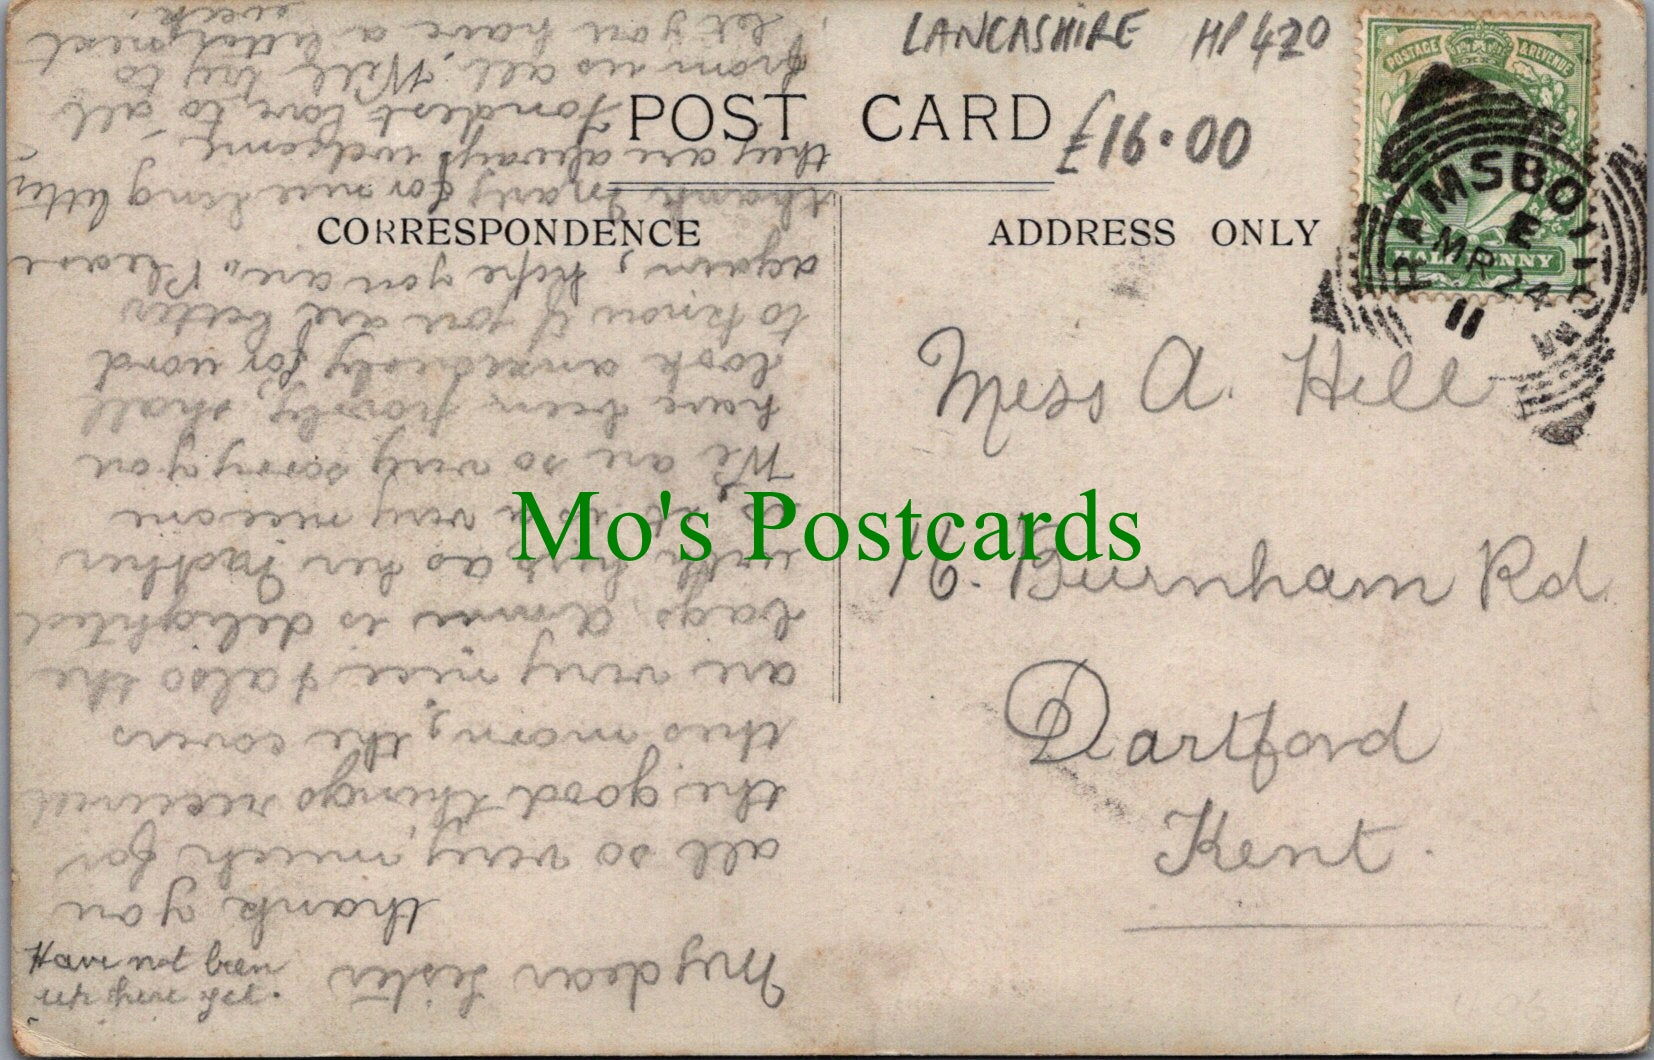 LANCASHIRE HP420
£16.00
POST CARD
CORRESPONDENCE
ADDRESS ONLY
POSTAGE & REVENUE
HALFPENNY
RAMSBOTTOM
E
MR 24
11
Miss A. Hill
16. Burnham Rd
Dartford
Kent.
Mo's Postcards
Have not been
up here yet.
My dear Sister
thank you
all so very much for
the good things received
this morng, the covers
are very nice & also the
bags. Annie is delighted
with hers as her
is, it is a very nice one
We are so very sorry you
have been poorly, shall
look anxiously for word
to know if you are better
again, hope you are. Please
thank Mary for nice long letter
they are always welcome.
Fondest love to all
from us all. Will try to
let you have a letter next
week.